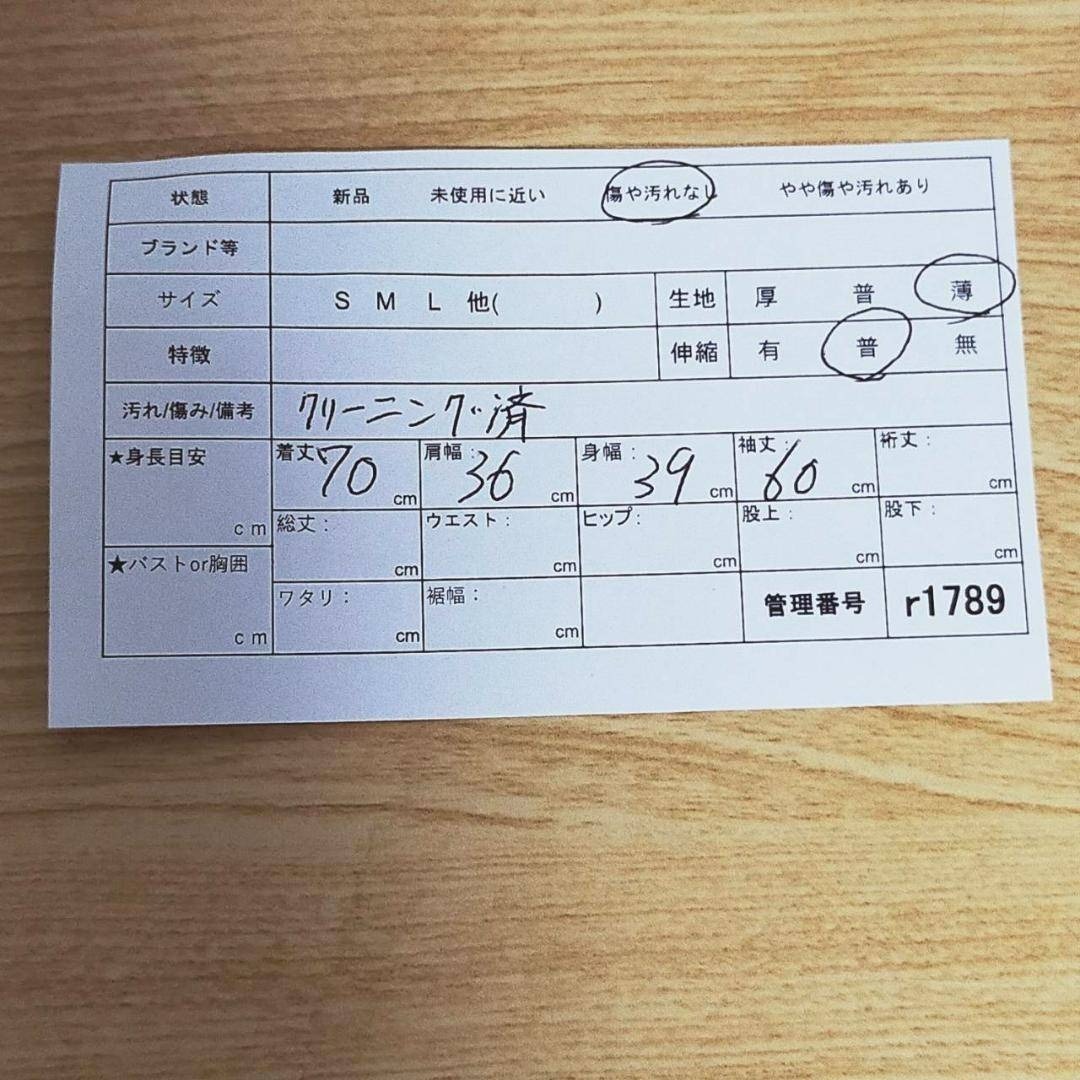 状態 新品 未使用に近い 傷や汚れなし やや傷や汚れあり
ブランド等
サイズ S M L 他( ) 生地 厚 普 薄
特徴 伸縮 有 普 無
汚れ/傷み/備考 クリーニング済
★身長目安 cm 着丈 70 cm 肩幅: 36 cm 身幅: 39 cm 袖丈: 60 cm 裄丈: cm
総丈: cm ウエスト: cm ヒップ: cm 股上: cm 股下: cm
★バストor胸囲 cm ワタリ: cm 裾幅: cm 管理番号 r1789